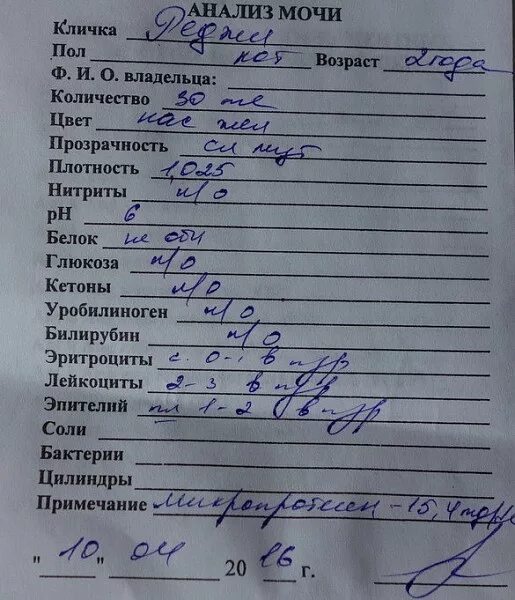 АНАЛИЗ МОЧИ
Кличка Реджи
Пол кот Возраст 2 года
Ф. И. О. владельца:
Количество 30 мл
Цвет нас жел
Прозрачность сл мут
Плотность 1,025
Нитриты н/о
pH 6
Белок не обн
Глюкоза н/о
Кетоны н/о
Уробилиноген н/о
Билирубин н/о
Эритроциты с. 0-1 в п/зр
Лейкоциты 2-3 в п/зр
Эпителий пл 1-2 в п/зр
Соли
Бактерии
Цилиндры
Примечание микропротеин - 15,4
"10" 04 2016 г.